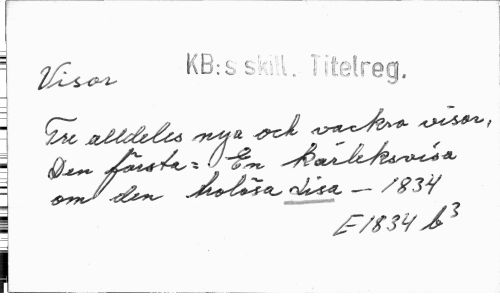 KB:s skill. Titelreg.
Visor
Tre alldeles nya och vackra visor,
Den första: En kärleksvisa
om den trolösa Lisa — 1834
E 1834 b3